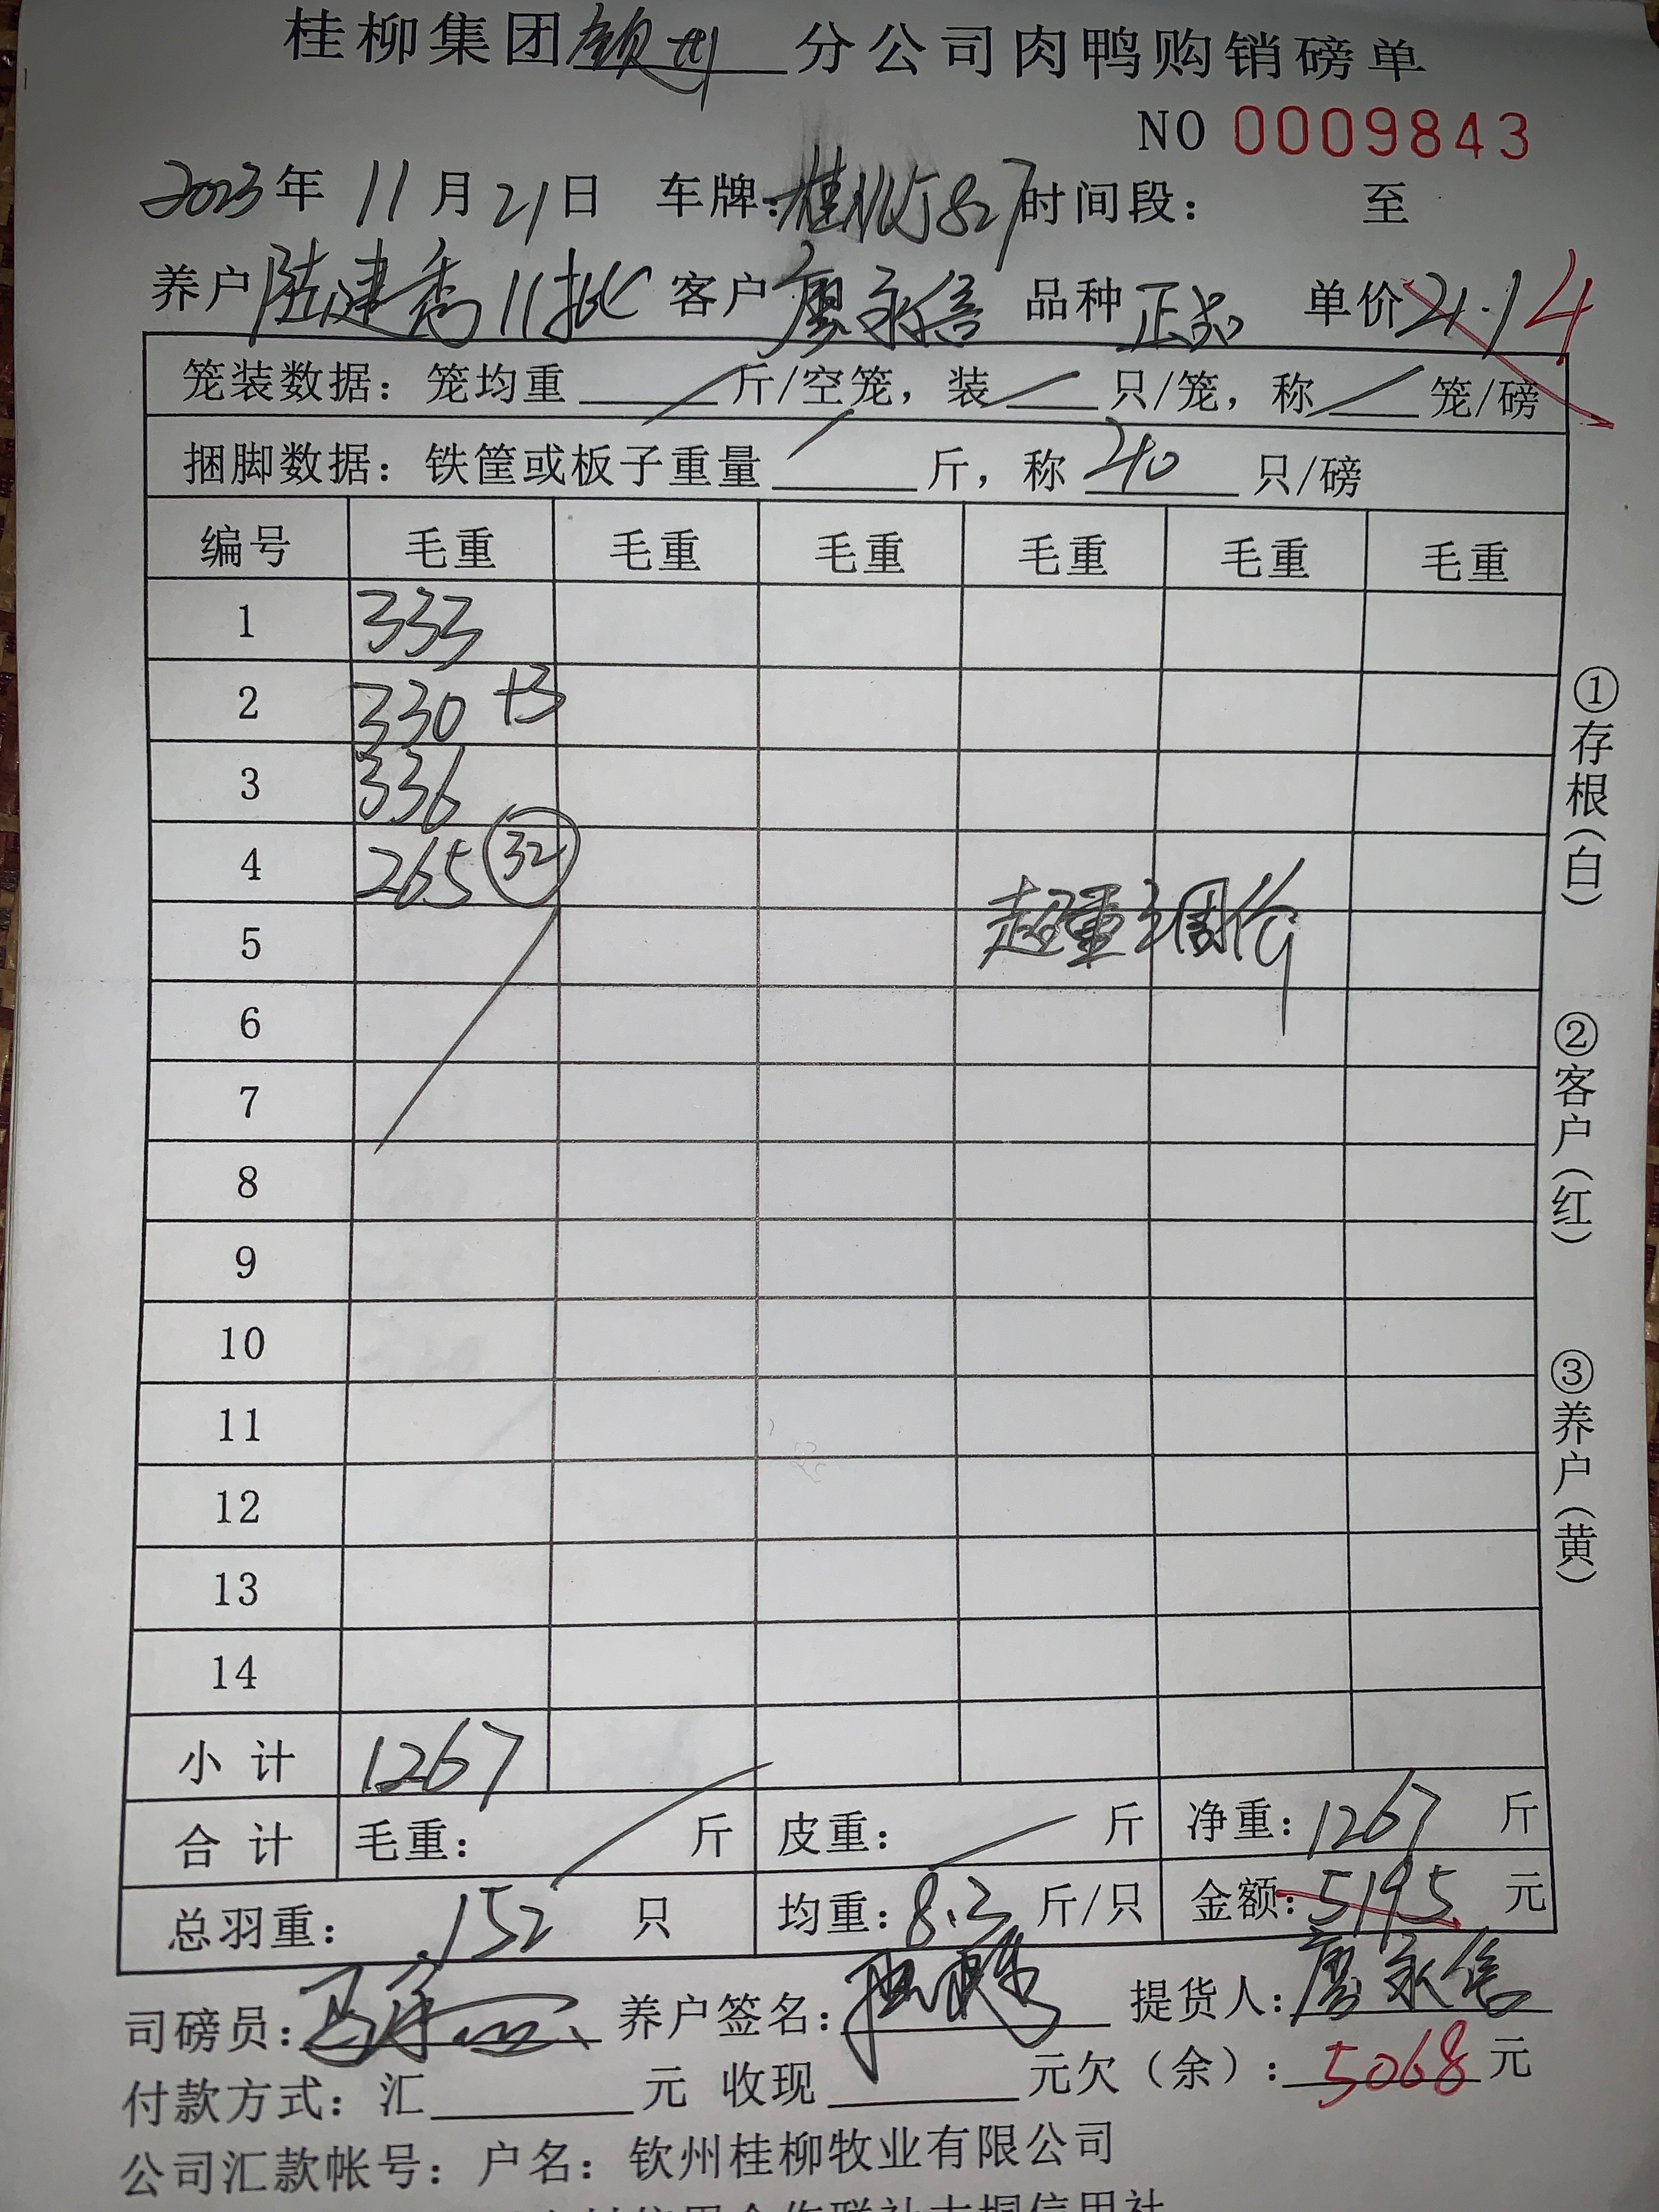 桂柳集团 分公司肉鸭购销磅单
NO 0009843
2023年 11月21日 车牌: 827 时间段: 至
养户 陆建秀 11批 客户 廖永信 品种 正品 单价 4.1 4
笼装数据: 笼均重 斤/空笼, 装 只/笼, 称 笼/磅
捆脚数据: 铁筐或板子重量 斤, 称 40 只/磅
编号 毛重 毛重 毛重 毛重 毛重 毛重
1 333
2 330 +3
3 336
4 265 32
超重调价
5
6
7
8
9
10
11
12
13
14
小计 1267
合计 毛重: 斤 皮重: 斤 净重: 1267 斤
总羽重: 152 只 均重: 8.3 斤/只 金额: 5195 元
司磅员: 养户签名: 提货人: 廖永信
付款方式: 汇 元 收现 元欠(余): 5068 元
公司汇款帐号: 户名: 钦州桂柳牧业有限公司
①存根(白)
②客户(红)
③养户(黄)